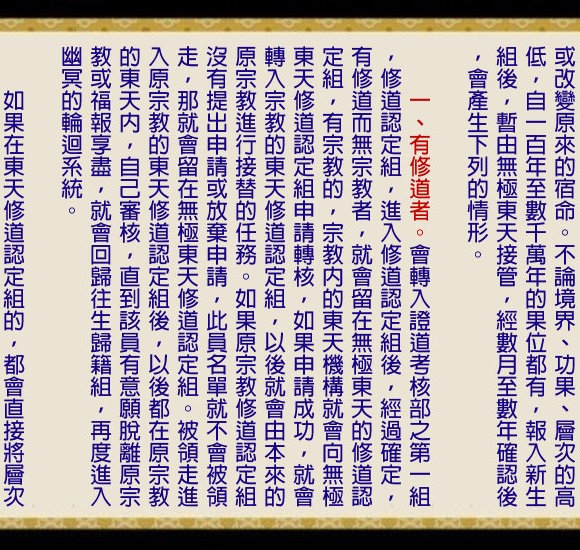 或改變原來的宿命。不論境界、功果、層次的高
低，自一百年至數千萬年的果位都有，報入新生
組後，暫由無極東天接管，經數月至數年確認後
，會產生下列的情形。
一、有修道者。會轉入證道考核部之第一組
，修道認定組，進入修道認定組後，經過確定，
有修道而無宗教者，就會留在無極東天的修道認
定組，有宗教的，宗教內的東天機構就會向無極
東天修道認定組申請轉核，如果申請成功，就會
轉入宗教的東天修道認定組，以後就會由本來的
原宗教進行接替的任務。如果原宗教修道認定組
沒有提出申請或放棄申請，此員名單就不會被領
走，那就會留在無極東天修道認定組。被領走進
入原宗教的東天修道認定組後，以後都在原宗教
的東天內，自己審核，直到該員有意願脫離原宗
教或福報享盡，就會回歸往生歸籍組，再度進入
幽冥的輪迴系統。
如果在東天修道認定組的，都會直接將層次